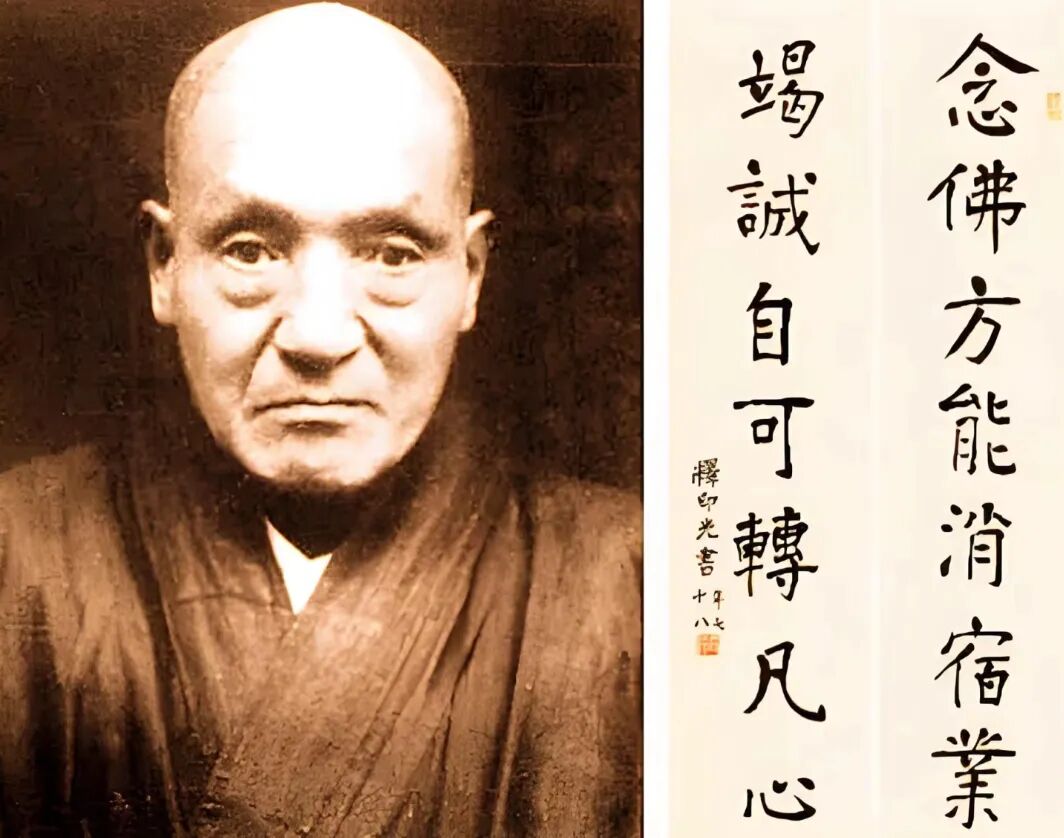 念佛方能消宿業
竭誠自可轉凡心
釋印光書
年七
十八